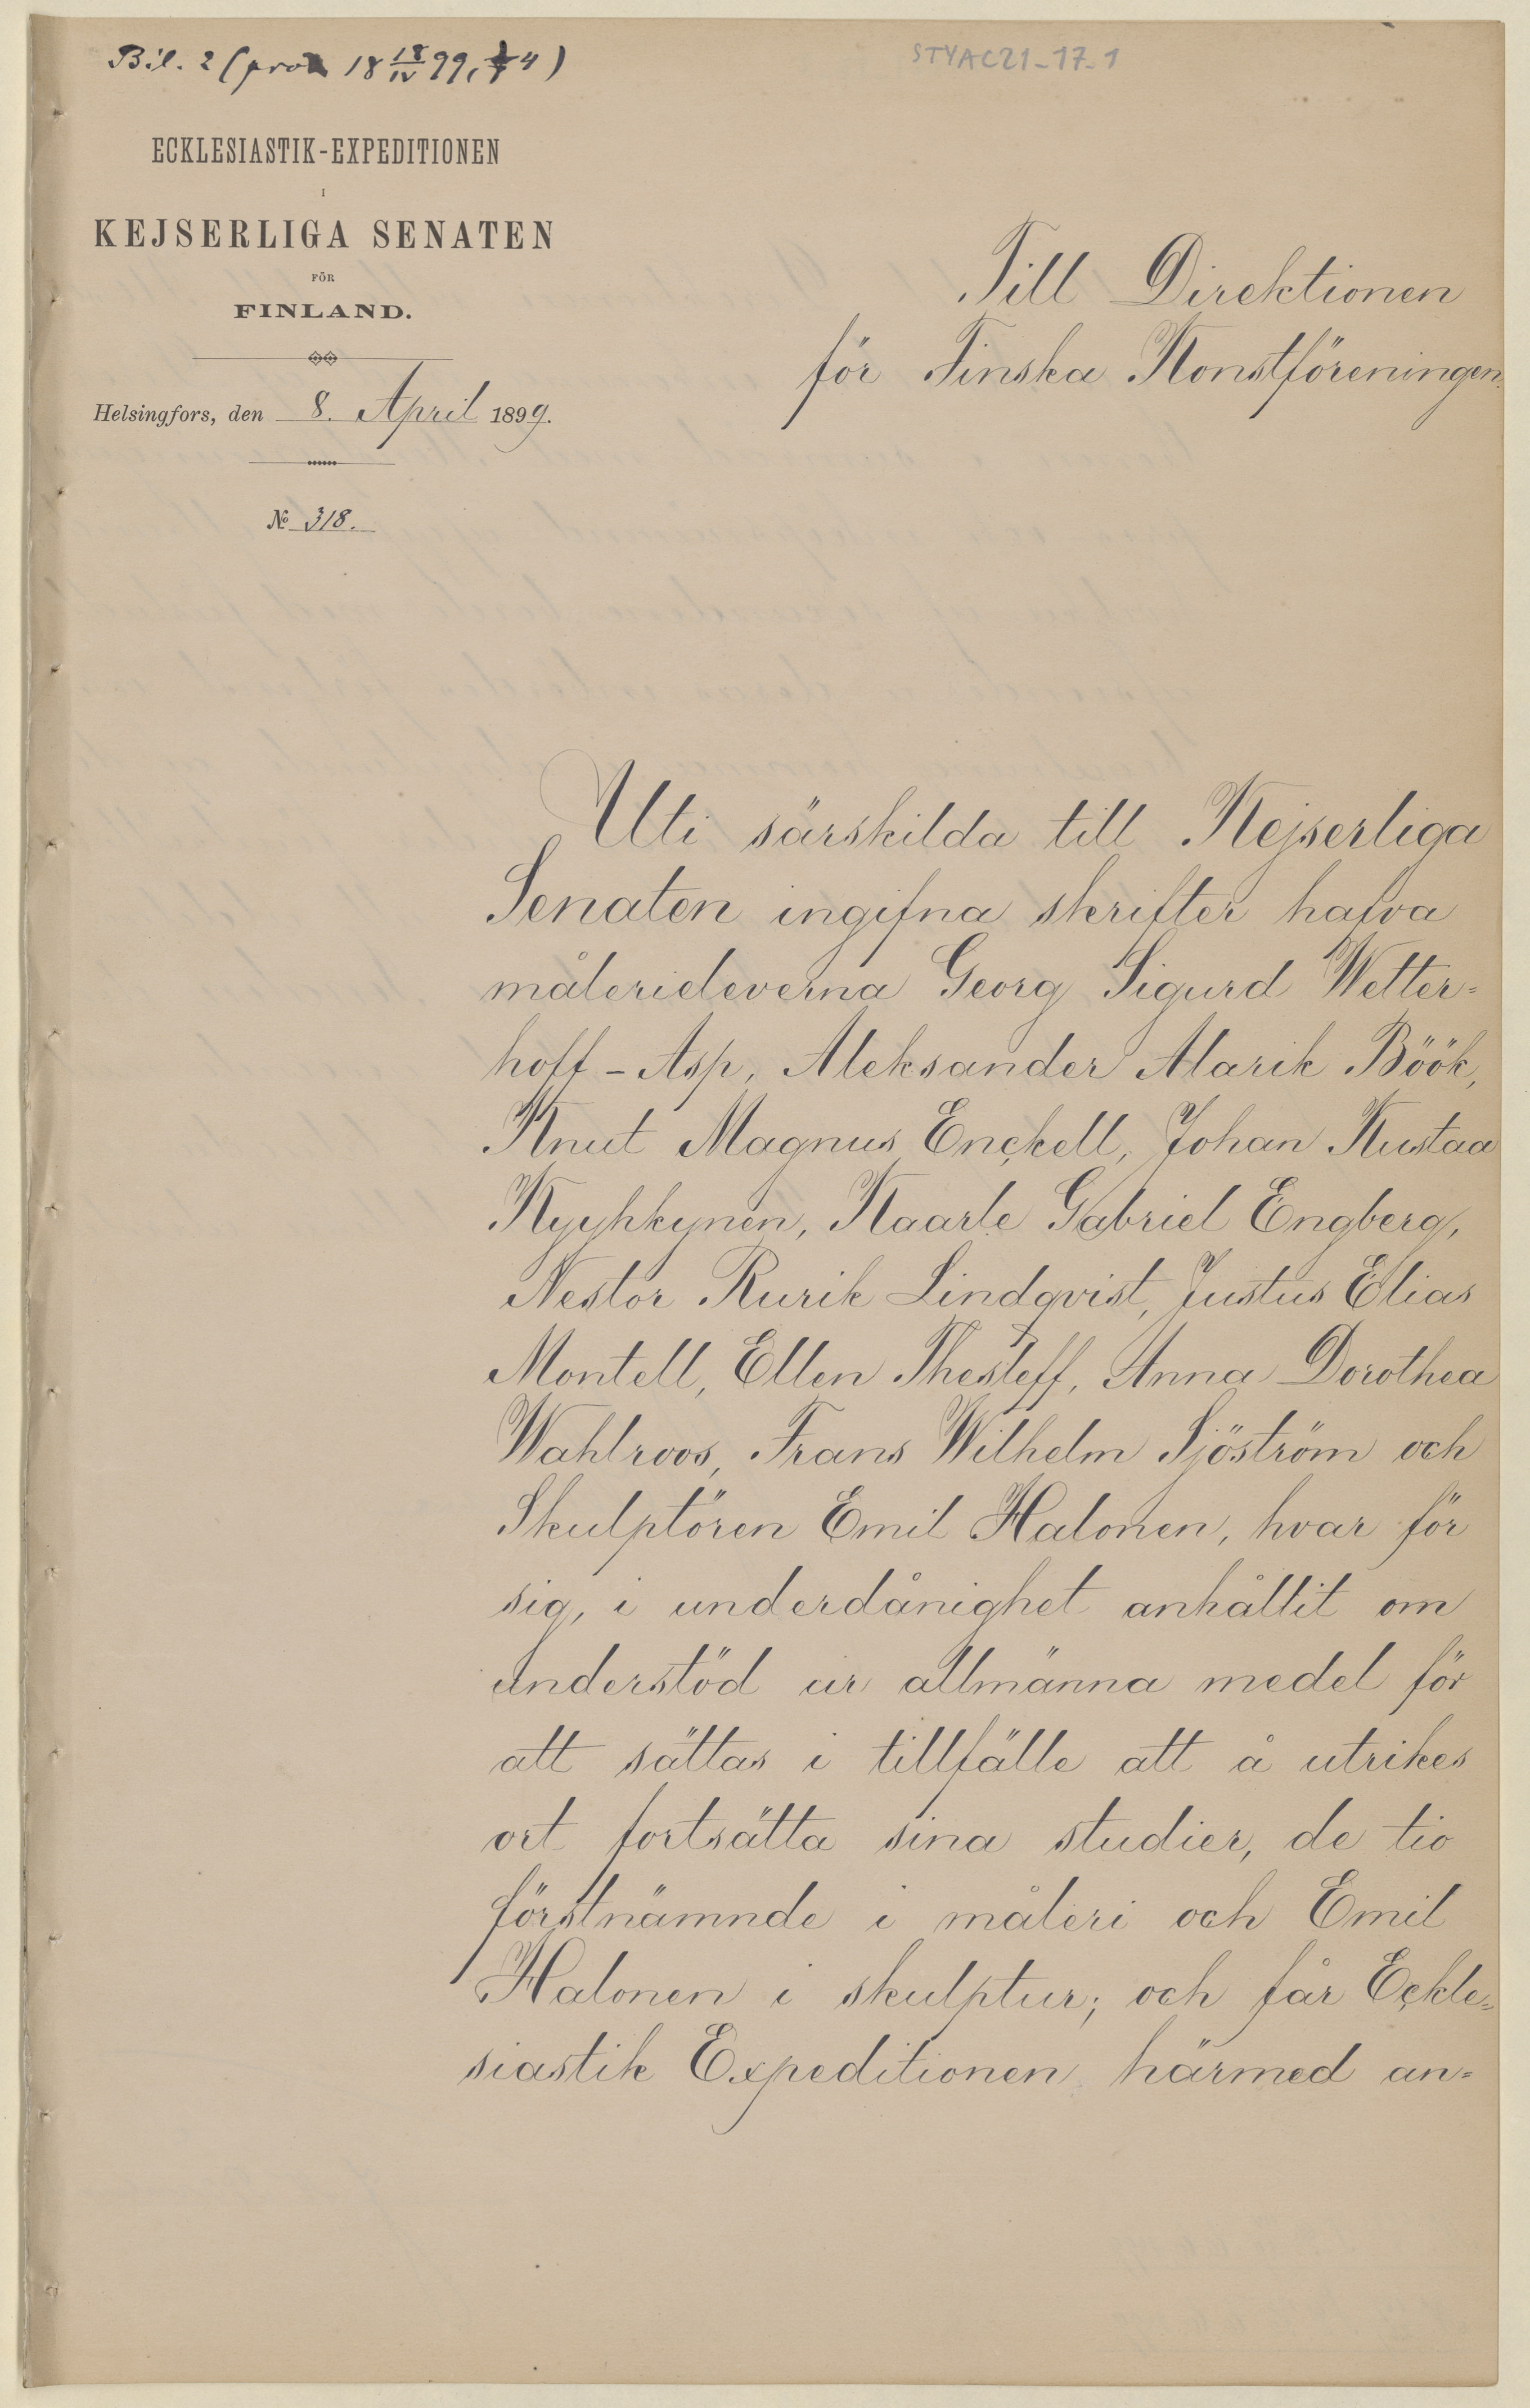 Bil. 2 (prot 18 18/IV 99, § 4)
STYAC21-17-1
ECKLESIASTIK-EXPEDITIONEN
I
KEJSERLIGA SENATEN
FÖR
FINLAND.
Helsingfors, den 8. April 1899.
№ 318.
Till Direktionen
för Finska Konstföreningen.
Uti särskilda till Kejserliga
Senaten ingifna skrifter hafva
målerieleverna Georg Sigurd Wetter=
hoff-Asp, Aleksander Alarik Böök,
Knut Magnus Enckell, Johan Kustaa
Kyyhkynen, Kaarle Gabriel Engberg,
Nestor Rurik Lindqvist, Justus Elias
Montell, Ellen Thesleff, Anna Dorothea
Wahlroos, Frans Wilhelm Sjöström och
Skulptören Emil Halonen, hvar för
sig, i underdånighet anhållit om
understöd ur allmänna medel för
att sättas i tillfälle att å utrikes
ort fortsätta sina studier, de tio
förstnämnde i måleri och Emil
Halonen i skulptur; och får Eckle=
siastik Expeditionen härmed an=